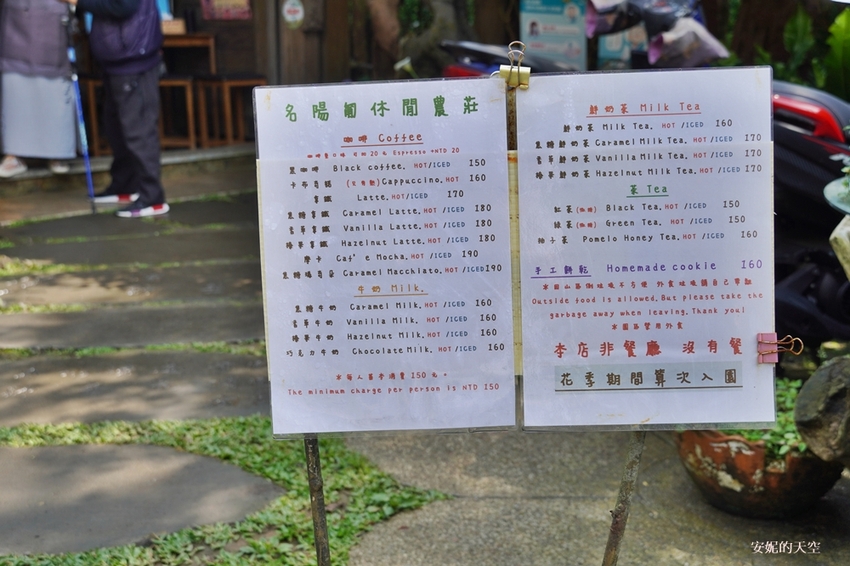 名陽匍休閒農莊
咖啡 Coffee
黑咖啡 Black coffee. HOT/ICED 150
卡布奇諾 Cappuccino. HOT 160
拿鐵 Latte. HOT/ICED 170
黑糖拿鐵 Caramel Latte. HOT /ICED 180
香草拿鐵 Vanilla Latte. HOT /ICED 180
榛果拿鐵 Hazelnut Latte. HOT /ICED 180
摩卡 Caf'e Mocha. HOT /ICED 190
黑糖瑪奇朵 Caramel Macchiato. HOT/ICED 190
牛奶 Milk.
黑糖牛奶 Caramel Milk. HOT /ICED 160
香草牛奶 Vanilla Milk. HOT /ICED 160
榛果牛奶 Hazelnut Milk. HOT /ICED 160
巧克力牛奶 Chocolate Milk. HOT /ICED 160
本莊每人最低消費 150 元。
The minimum charge per person is NTD 150
鮮奶茶 Milk Tea
鮮奶茶 Milk Tea. HOT /ICED 160
黑糖鮮奶茶 Caramel Milk Tea. HOT /ICED 170
香草鮮奶茶 Vanilla Milk Tea. HOT /ICED 170
榛果鮮奶茶 Hazelnut Milk Tea. HOT /ICED 170
茶 Tea
紅茶 Black Tea. HOT /ICED 150
綠茶 Green Tea. HOT /ICED 150
柚子茶 Pomelo Honey Tea. HOT /ICED 160
手工餅乾 Homemade cookie 160
Outside food is allowed. But please take the
garbage away when leaving. Thank you!
本店非餐廳 沒有餐
花季期間算次入園
安妮的天空